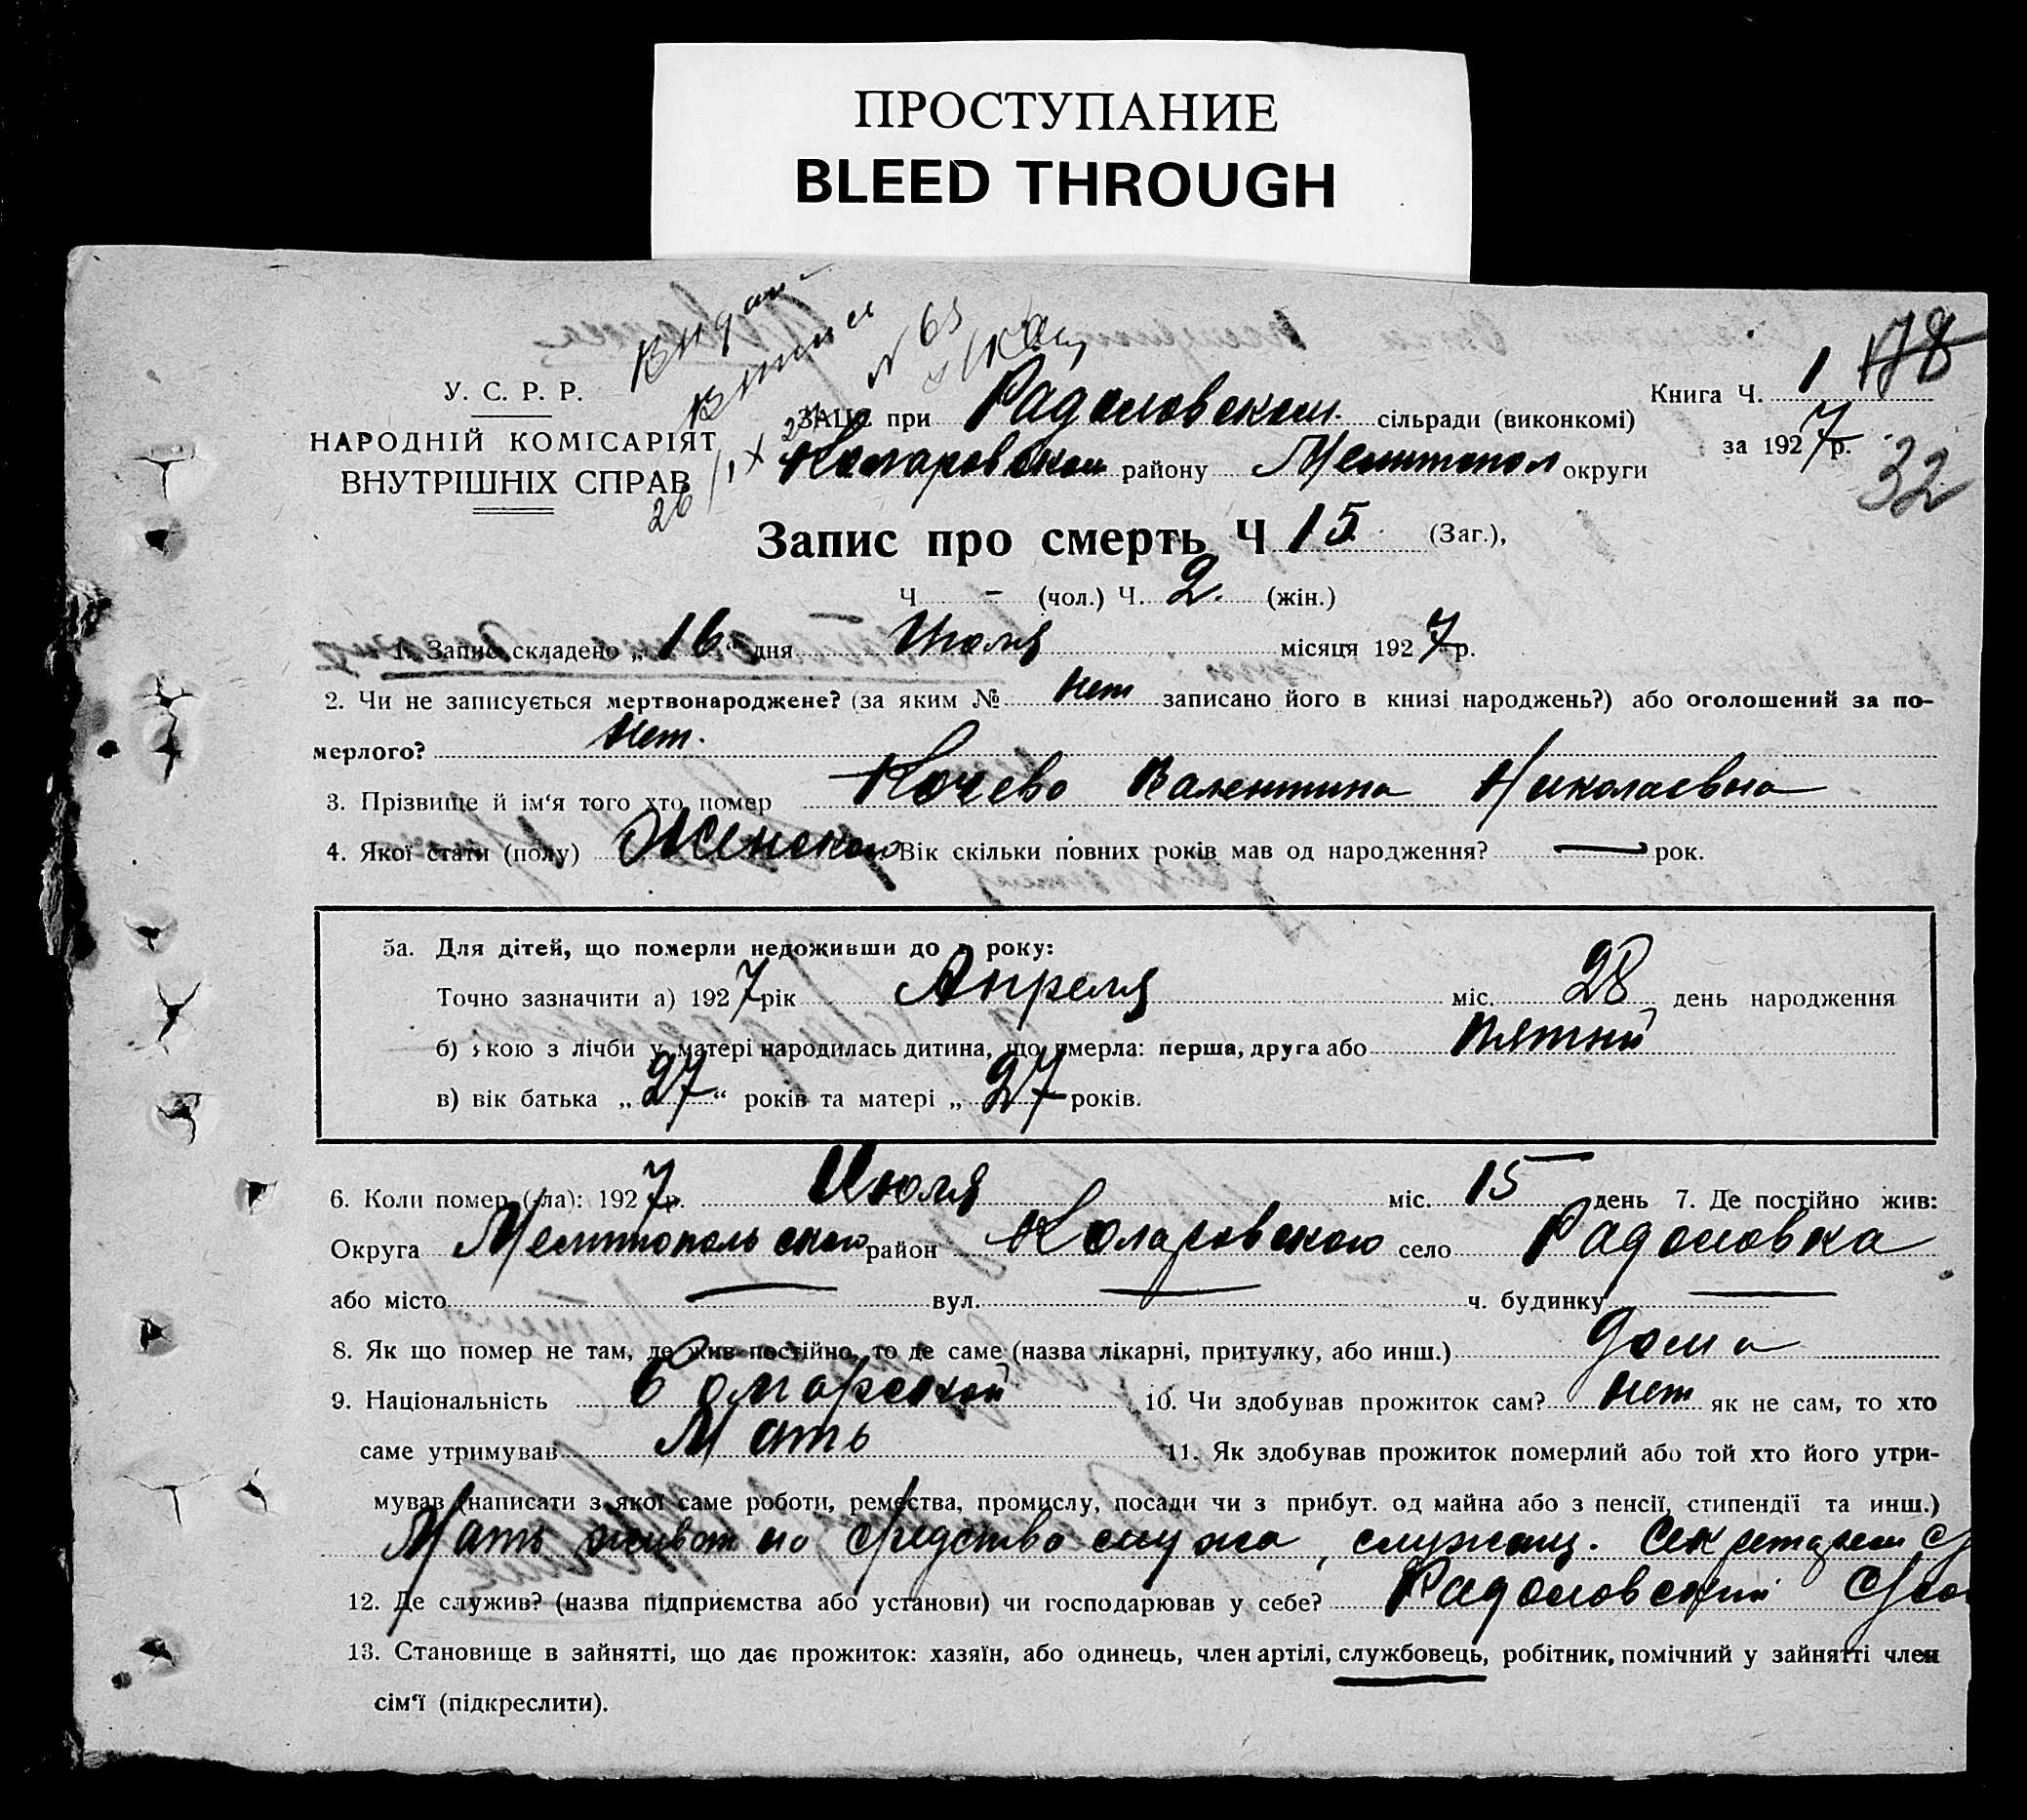 ПРОСТУПАНИЕ
BLEED THROUGH
Видан
№ 63
У. С. Р. Р.
НАРОДНІЙ КОМІСАРІЯТ
ВНУТРІШНІХ СПРАВ
Книга Ч. 1 178
за 1927 р.
32
ЗАЦС при Радоловском сільради (виконкомі)
Коларовском району Мелитопол округи
Запис про смерть Ч 15 (Заг.),
Ч - (чол.) Ч. 2. (жін.)
1. Запис складено „16“ дня Июля місяця 1927 р.
2. Чи не записується мертвонароджене? (за яким № нет записано його в книзі народжень?) або оголошений за по-
мерлого? Нет.
3. Прізвище й ім‘я того хто помер Кочево Валентина Николаевна
4. Якої стати (полу) Женского Вік скільки повних років мав од народження? — рок.
5а. Для дітей, що померли недоживши до року:
Точно зазначити а) 1927 рік Апреля міс. 28 день народження
б) якою з лічби у матері народилась дитина, що вмерла: перша, друга або пятий
в) вік батька „27“ років та матері „27 років.
6. Коли помер (-ла): 1927 р. Июля міс. 15 день 7. Де постійно жив:
Округа Мелитопольского район Коларовского село Радоловка
або місто — вул. — ч. будинку —
8. Як що помер не там, де жив постійно, то де саме (назва лікарні, притулку, або инш.) дома
9. Національність Болгарской 10. Чи здобував прожиток сам? нет як не сам, то хто
саме утримував Мать 11. Як здобував прожиток померлий або той хто його утри-
мував (написати з якої саме роботи, ремества, промислу, посади чи з прибут. од майна або з пенсії, стипендії та инш.)
Мать живет на средства мужа, служащ. Секретарем
12. Де служив? (назва підприємства або установи) чи господарював у себе? Радоловский
13. Становище в зайнятті, що дає прожиток: хазяїн, або одинець, член артілі, службовець, робітник, помічний у зайнятті член
сім‘ї (підкреслити).